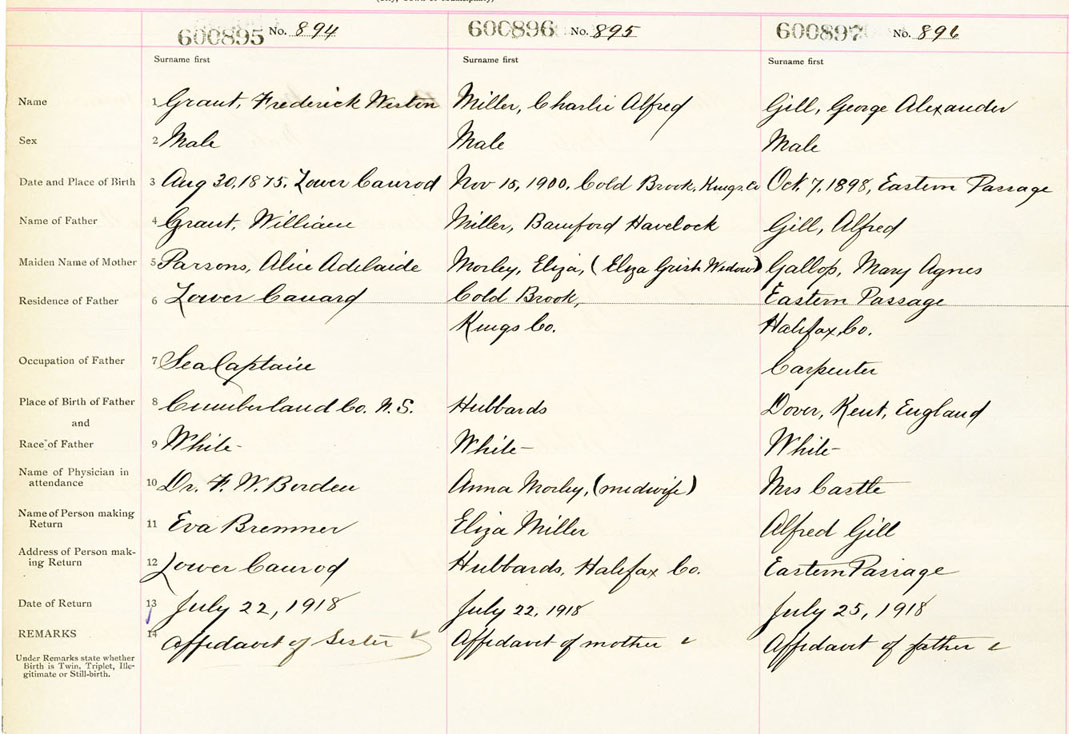 600895 No. 894 600896 No. 895 600897 No. 896
Surname first Surname first Surname first
Name 1 Grant, Frederick Weston Miller, Charlie Alfred Gill, George Alexander
Sex 2 Male Male Male
Date and Place of Birth 3 Aug 30, 1875, Lower Canrod Nov 15, 1900, Cold Brook, Kings Co Oct. 7, 1898, Eastern Passage
Name of Father 4 Grant, William Miller, Bamford Havelock Gill, Alfred
Maiden Name of Mother 5 Parsons, Alice Adelaide Morley, Eliza, (Eliza Grish Widow) Gallop, Mary Agnes
Residence of Father 6 Lower Canard Cold Brook, Eastern Passage
Kings Co. Halifax Co.
Occupation of Father 7 Sea Captain Carpenter
Place of Birth of Father 8 Cumberland Co. N.S. Hubbards Dover, Kent, England
and
Race of Father 9 White White White
Name of Physician in
attendance 10 Dr. F. W. Borden Anna Morley, (midwife) Mrs Castle
Name of Person making
Return 11 Eva Bremner Eliza Miller Alfred Gill
Address of Person mak-
ing Return 12 Lower Canrod Hubbards, Halifax Co. Eastern Passage
Date of Return 13 July 22, 1918 July 22, 1918 July 25, 1918
REMARKS 14 Affidavit of Sister Affidavit of mother Affidavit of father
Under Remarks state whether
Birth is Twin, Triplet, Ille-
gitimate or Still-birth.